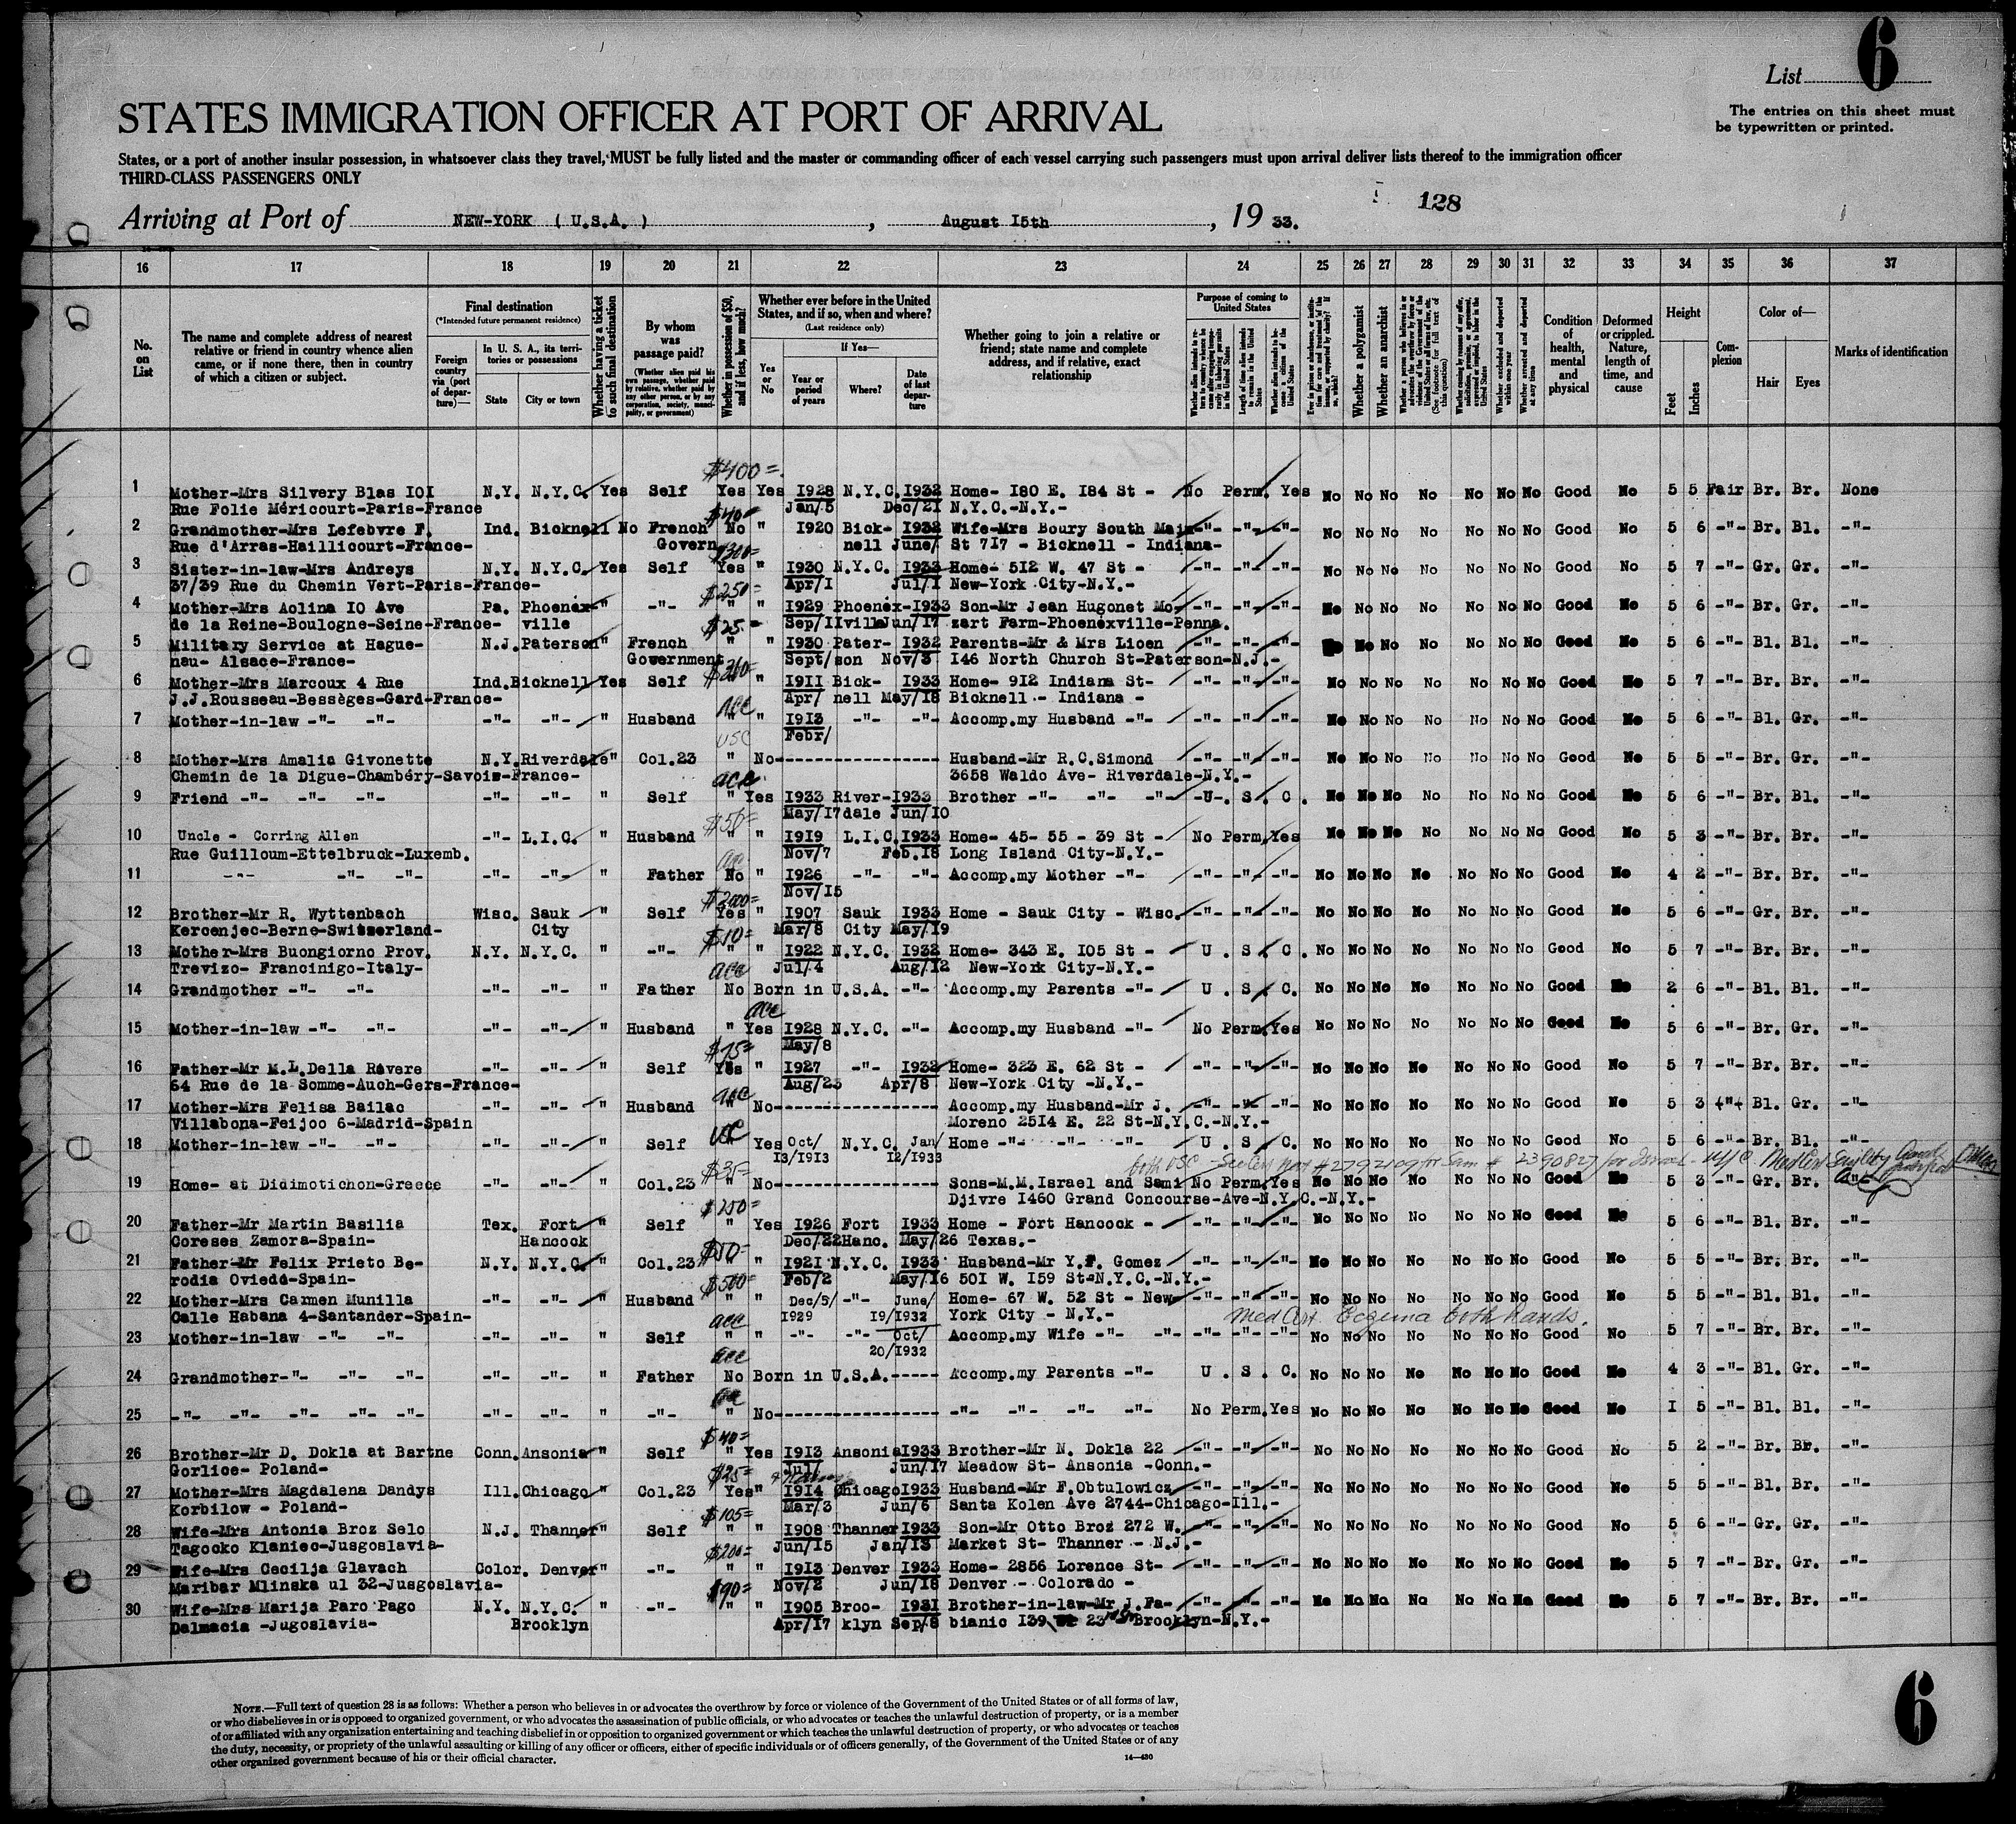 List 6
The entries on this sheet must
be typewritten or printed.
STATES IMMIGRATION OFFICER AT PORT OF ARRIVAL
States, or a port of another insular possession, in whatsoever class they travel, MUST be fully listed and the master or commanding officer of each vessel carrying such passengers must upon arrival deliver lists thereof to the immigration officer
THIRD-CLASS PASSENGERS ONLY
128
Arriving at Port of NEW-YORK ( U.S.A. ) , August I5th , 19 33.
16 17 18 19 20 21 22 23 24 25 26 27 28 29 30 31 32 33 34 35 36 37
No. on List
The name and complete address of nearest relative or friend in country whence alien came, or if none there, then in country of which a citizen or subject.
Final destination
(*Intended future permanent residence)
Foreign country via (port of departure)—
In U. S. A., its territories or possessions
State City or town
Whether having a ticket to such final destination
By whom was passage paid?
(Whether alien paid his own passage, whether paid by relative, whether paid by any other person, or by any corporation, society, municipality, or government)
Whether in possession of $50, and if less, how much?
Whether ever before in the United States, and if so, when and where?
(Last residence only)
Yes or No
If Yes—
Year or period of years Where? Date of last departure
Whether going to join a relative or friend; state name and complete address, and if relative, exact relationship
Purpose of coming to United States
Length of time alien intends to remain in the United States
Whether alien intends to become a citizen of the United States
Whether a polygamist
Whether an anarchist
Whether excluded and deported within one year
Whether arrested and deported at any time
Condition of health, mental and physical
Deformed or crippled. Nature, length of time, and cause
Height
Feet Inches
Complexion
Color of—
Hair Eyes
Marks of identification
$400=
1 Mother-Mrs Silvery Blas IOI N.Y. N.Y.C. Yes Self Yes Yes I928 N.Y.C. I932 Home- I80 E. I84 St - No Perm. Yes No No No No No No No Good No 5 5 Fair Br. Br. None
Rue Folie Méricourt-Paris-France Jan/5 Dec/2I N.Y.C.-N.Y.-
$40=
2 Grandmother-Mrs Lefebvre F. Ind. Bicknell No French No " I920 Bick- I932 Wife-Mrs Boury South Main -"- -"- -"- No No No No No No No Good No 5 6 -"- Br. Bl. -"-
Rue d'Arras-Haillicourt-France- Govern. nell June/ St 7I7 - Bicknell - Indiana-
$300=
3 Sister-in-law-Mrs Andreys N.Y. N.Y.C. Yes Self Yes " I930 N.Y.C. I933 Home- 5I2 W. 47 St - -"- -"- -"- No No No No No No No Good No 5 7 -"- Gr. Gr. -"-
37/39 Rue du Chemin Vert-Paris-France- Apr/I Jul/I New-York City-N.Y.-
$250=
4 Mother-Mrs Aolina IO Ave Pa. Phoenix- " -"- " " I929 Phoenix- I933 Son-Mr Jean Hugonet Mo- -"- -"- -"- No No No No No No No Good No 5 6 -"- Br. Gr. -"-
de la Reine-Boulogne-Seine-France- ville Sep/II ville Jun/I7 zart Farm-Phoenixville-Penna.
$25=
5 Military Service at Hague- N.J. Paterson " French " " I930 Pater- I932 Parents-Mr & Mrs Lioen -"- -"- -"- No No No No No No No Good No 5 6 -"- Bl. Bl. -"-
nau- Alsace-France- Government Sept/ son Nov/3 I46 North Church St-Paterson-N.J.-
6 Mother-Mrs Marcoux 4 Rue Ind. Bicknell Yes Self " " I9II Bick- I933 Home- 9I2 Indiana St- -"- -"- -"- No No No No No No No Good No 5 7 -"- Br. Br. -"-
J.J.Rousseau-Bessèges-Gard-France- Apr/ nell May/I8 Bicknell - Indiana -
acc
7 Mother-in-law -"- -"- -"- -"- " Husband " " I9I3 -"- -"- Accomp.my Husband -"- -"- -"- -"- No No No No No No No Good No 5 6 -"- Bl. Gr. -"-
Febr/
USC
8 Mother-Mrs Amalia Givonette N.Y. Riverdale " Col.23 " No--------------- Husband-Mr R.C.Simond -"- -"- -"- No No No No No No No Good No 5 5 -"- Br. Gr. -"-
Chemin de la Digue-Chambéry-Savoie-France- 3658 Waldo Ave- Riverdale-N.Y.-
acc
9 Friend -"- -"- -"- -"- -"- " Self " Yes I933 River- I933 Brother -"- -"- -"- -U-. S. C. No No No No No No No Good No 5 6 -"- Br. Bl. -"-
May/I7 dale Jun/IO
$50=
10 Uncle - Corring Allen -"- L.I.C. " Husband " " I9I9 L.I.C. I933 Home- 45- 55 - 39 St - No Perm. Yes No No No No No No No Good No 5 3 -"- Br. Br. -"-
Rue Guilloum-Ettelbruck-Luxemb. Nov/7 Feb.I8 Long Island City-N.Y.-
11 -"- -"- -"- -"- -"- " Father No " I926 -"- -"- Accomp.my Mother -"- -"- -"- -"- No No No No No No No Good No 4 2 -"- Br. Br. -"-
Nov/I5
$2000=
12 Brother-Mr R. Wyttenbach Wisc. Sauk " Self Yes " I907 Sauk I933 Home - Sauk City - Wisc. -"- -"- -"- No No No No No No No Good No 5 6 -"- Gr. Br. -"-
Kercenjec-Berne-Switserland- City Mar/8 City May/I9
$10=
13 Mother-Mrs Buongiorno Prov. N.Y. N.Y.C. " -"- " " I922 N.Y.C. I932 Home- 343 E. IO5 St - U . S . C . No No No No No No No Good No 5 7 -"- Br. Br. -"-
Trevizo- Francinigo-Italy- Jul/4 Aug/I2 New-York City-N.Y.-
acc
14 Grandmother -"- -"- -"- -"- " Father No Born in U.S.A. -"- Accomp.my Parents -"- U . S . C. No No No No No No No Good No 2 6 -"- Bl. Bl. -"-
acc
15 Mother-in-law -"- -"- -"- -"- " Husband " Yes I928 N.Y.C. -"- Accomp.my Husband -"- No Perm. Yes No No No No No No No Good No 5 6 -"- Br. Gr. -"-
May/8
$75=
16 Father-Mr M.L.Della Révere -"- -"- " Self Yes " I927 -"- I932 Home- 323 E. 62 St - -"- -"- -"- No No No No No No No Good No 5 7 -"- Br. Br. -"-
64 Rue de la Somme-Auch-Gers-France- Aug/25 Apr/8 New-York City -N.Y.-
acc
17 Mother-Mrs Felisa Bailac -"- -"- " Husband " No--------------- Accomp.my Husband-Mr J. -"- -"- -"- No No No No No No No Good No 5 3 -"- Bl. Gr. -"-
Villabona-Feijoo 6-Madrid-Spain Moreno 25I4 E. 22 St-N.Y.C.-N.Y.-
18 Mother-in-law -"- -"- -"- -"- " Self Yes Oct/ N.Y.C. Jan/ Home -"- -"- -"- U . S . C. No No No No No No No Good No 5 6 -"- Br. Bl. -"-
I3/I9I3 I2/I933
$35=
19 Home- at Didimotichon-Greece -"- -"- " Col.23 " No--------------- Sons-M.M.Israel and Sami No Perm. Yes No No No No No No No Good No 5 3 -"- Gr. Br.
Djivre I460 Grand Concourse-Ave-N.Y.C.-N.Y.-
$250=
20 Father-Mr Martin Basilia Tex. Fort " Self " Yes I926 Fort I933 Home - Fort Hancock - -"- -"- -"- No No No No No No No Good No 5 6 -"- Bl. Br. -"-
Coreses Zamora-Spain- Hancock Dec/22 Hanc. May/26 Texas.-
$50=
21 Father-Mr Felix Prieto Be- N.Y. N.Y.C. " Col.23 " " I92I N.Y.C. I933 Husband-Mr Y.F. Gomez -"- -"- -"- No No No No No No No Good No 5 5 -"- Br. Br. -"-
rodia Oviedo-Spain- Feb/2 May/I6 50I W. I59 St-N.Y.C.-N.Y.-
$500=
22 Mother-Mrs Carmen Munilla -"- -"- " Husband " " Dec/5/ -"- June/ Home- 67 W. 52 St - New- -"- -"- -"- No No No No No No No Good No 5 5 -"- Bl. Bl. -"-
Calle Habana 4-Santander-Spain- I929 I9/I932 York City - N.Y.-
Med Cert Eczema both hands.
acc
23 Mother-in-law -"- -"- -"- -"- " Self " " -"- -"- Oct/ Accomp.my Wife -"- -"- -"- -"- -"- No No No No No No No Good No 5 7 -"- Br. Br. -"-
20/I932
acc
24 Grandmother-"- -"- -"- -"- -"- " Father No Born in U.S.A.----- Accomp.my Parents -"- U . S . C. No No No No No No No Good No 4 3 -"- Bl. Gr. -"-
acc
25 -"- -"- -"- -"- -"- -"- -"- " -"- " No--------------- -"- -"- -"- -"- No Perm. Yes No No No No No No No Good No I 5 -"- Bl. Bl. -"-
$40=
26 Brother-Mr D. Dokla at Bartne Conn. Ansonia " Self " Yes I9I3 Ansonia I933 Brother-Mr N. Dokla 22 -"- -"- -"- No No No No No No No Good No 5 2 -"- Br. Br. -"-
Gorlice- Poland- Jul/ Jun/I7 Meadow St- Ansonia -Conn.-
$25=
27 Mother-Mrs Magdalena Dandys Ill. Chicago " Col.23 Yes " I9I4 Chicago I933 Husband-Mr F.Obtulowicz -"- -"- -"- No No No No No No No Good No 5 5 -"- Bl. Br. -"-
Korbilow - Poland- Mar/3 Jun/6 Santa Kolen Ave 2744-Chicago-Ill.-
$105=
28 Wife-Mrs Antonia Broz Selo N.J. Thanner " Self " " I908 Thanner I933 Son-Mr Otto Broz 272 W. -"- -"- -"- No No No No No No No Good No 5 6 -"- Gr. Gr. -"-
Tagocko Klaniec-Jusgoslavia- Jun/I5 Jan/I3 Market St- Thanner - N.J.-
$200=
29 Wife-Mrs Cecilja Glavach Color. Denver " -"- " " I9I3 Denver I933 Home- 2856 Lorence St- -"- -"- -"- No No No No No No No Good No 5 7 -"- Br. Gr. -"-
Maribar Mlinska ul 32-Jusgoslavia- Nov/2 Jun/I8 Denver - Colorado -
$90=
30 Wife-Mrs Marija Paro Pago N.Y. N.Y.C. " -"- " " I905 Broo- I93I Brother-in-law-Mr J.Fa- -"- -"- -"- No No No No No No No Good No 5 7 -"- Br. Br. -"-
Dalmacia -Jugoslavia- Brooklyn Apr/I7 klyn Sep/8 bianic I39 23 Brooklyn-N.Y.-
NOTE.—Full text of question 28 is as follows: Whether a person who believes in or advocates the overthrow by force or violence of the Government of the United States or of all forms of law,
or who disbelieves in or is opposed to organized government, or who advocates the assassination of public officials, or who advocates or teaches the unlawful destruction of property, or is a member
of or affiliated with any organization entertaining and teaching disbelief in or opposition to organized government or which teaches the unlawful destruction of property, or who advocates or teaches
the duty, necessity, or propriety of the unlawful assaulting or killing of any officer or officers, either of specific individuals or of officers generally, of the Government of the United States or of any
other organized government because of his or their official character.
14—430
6